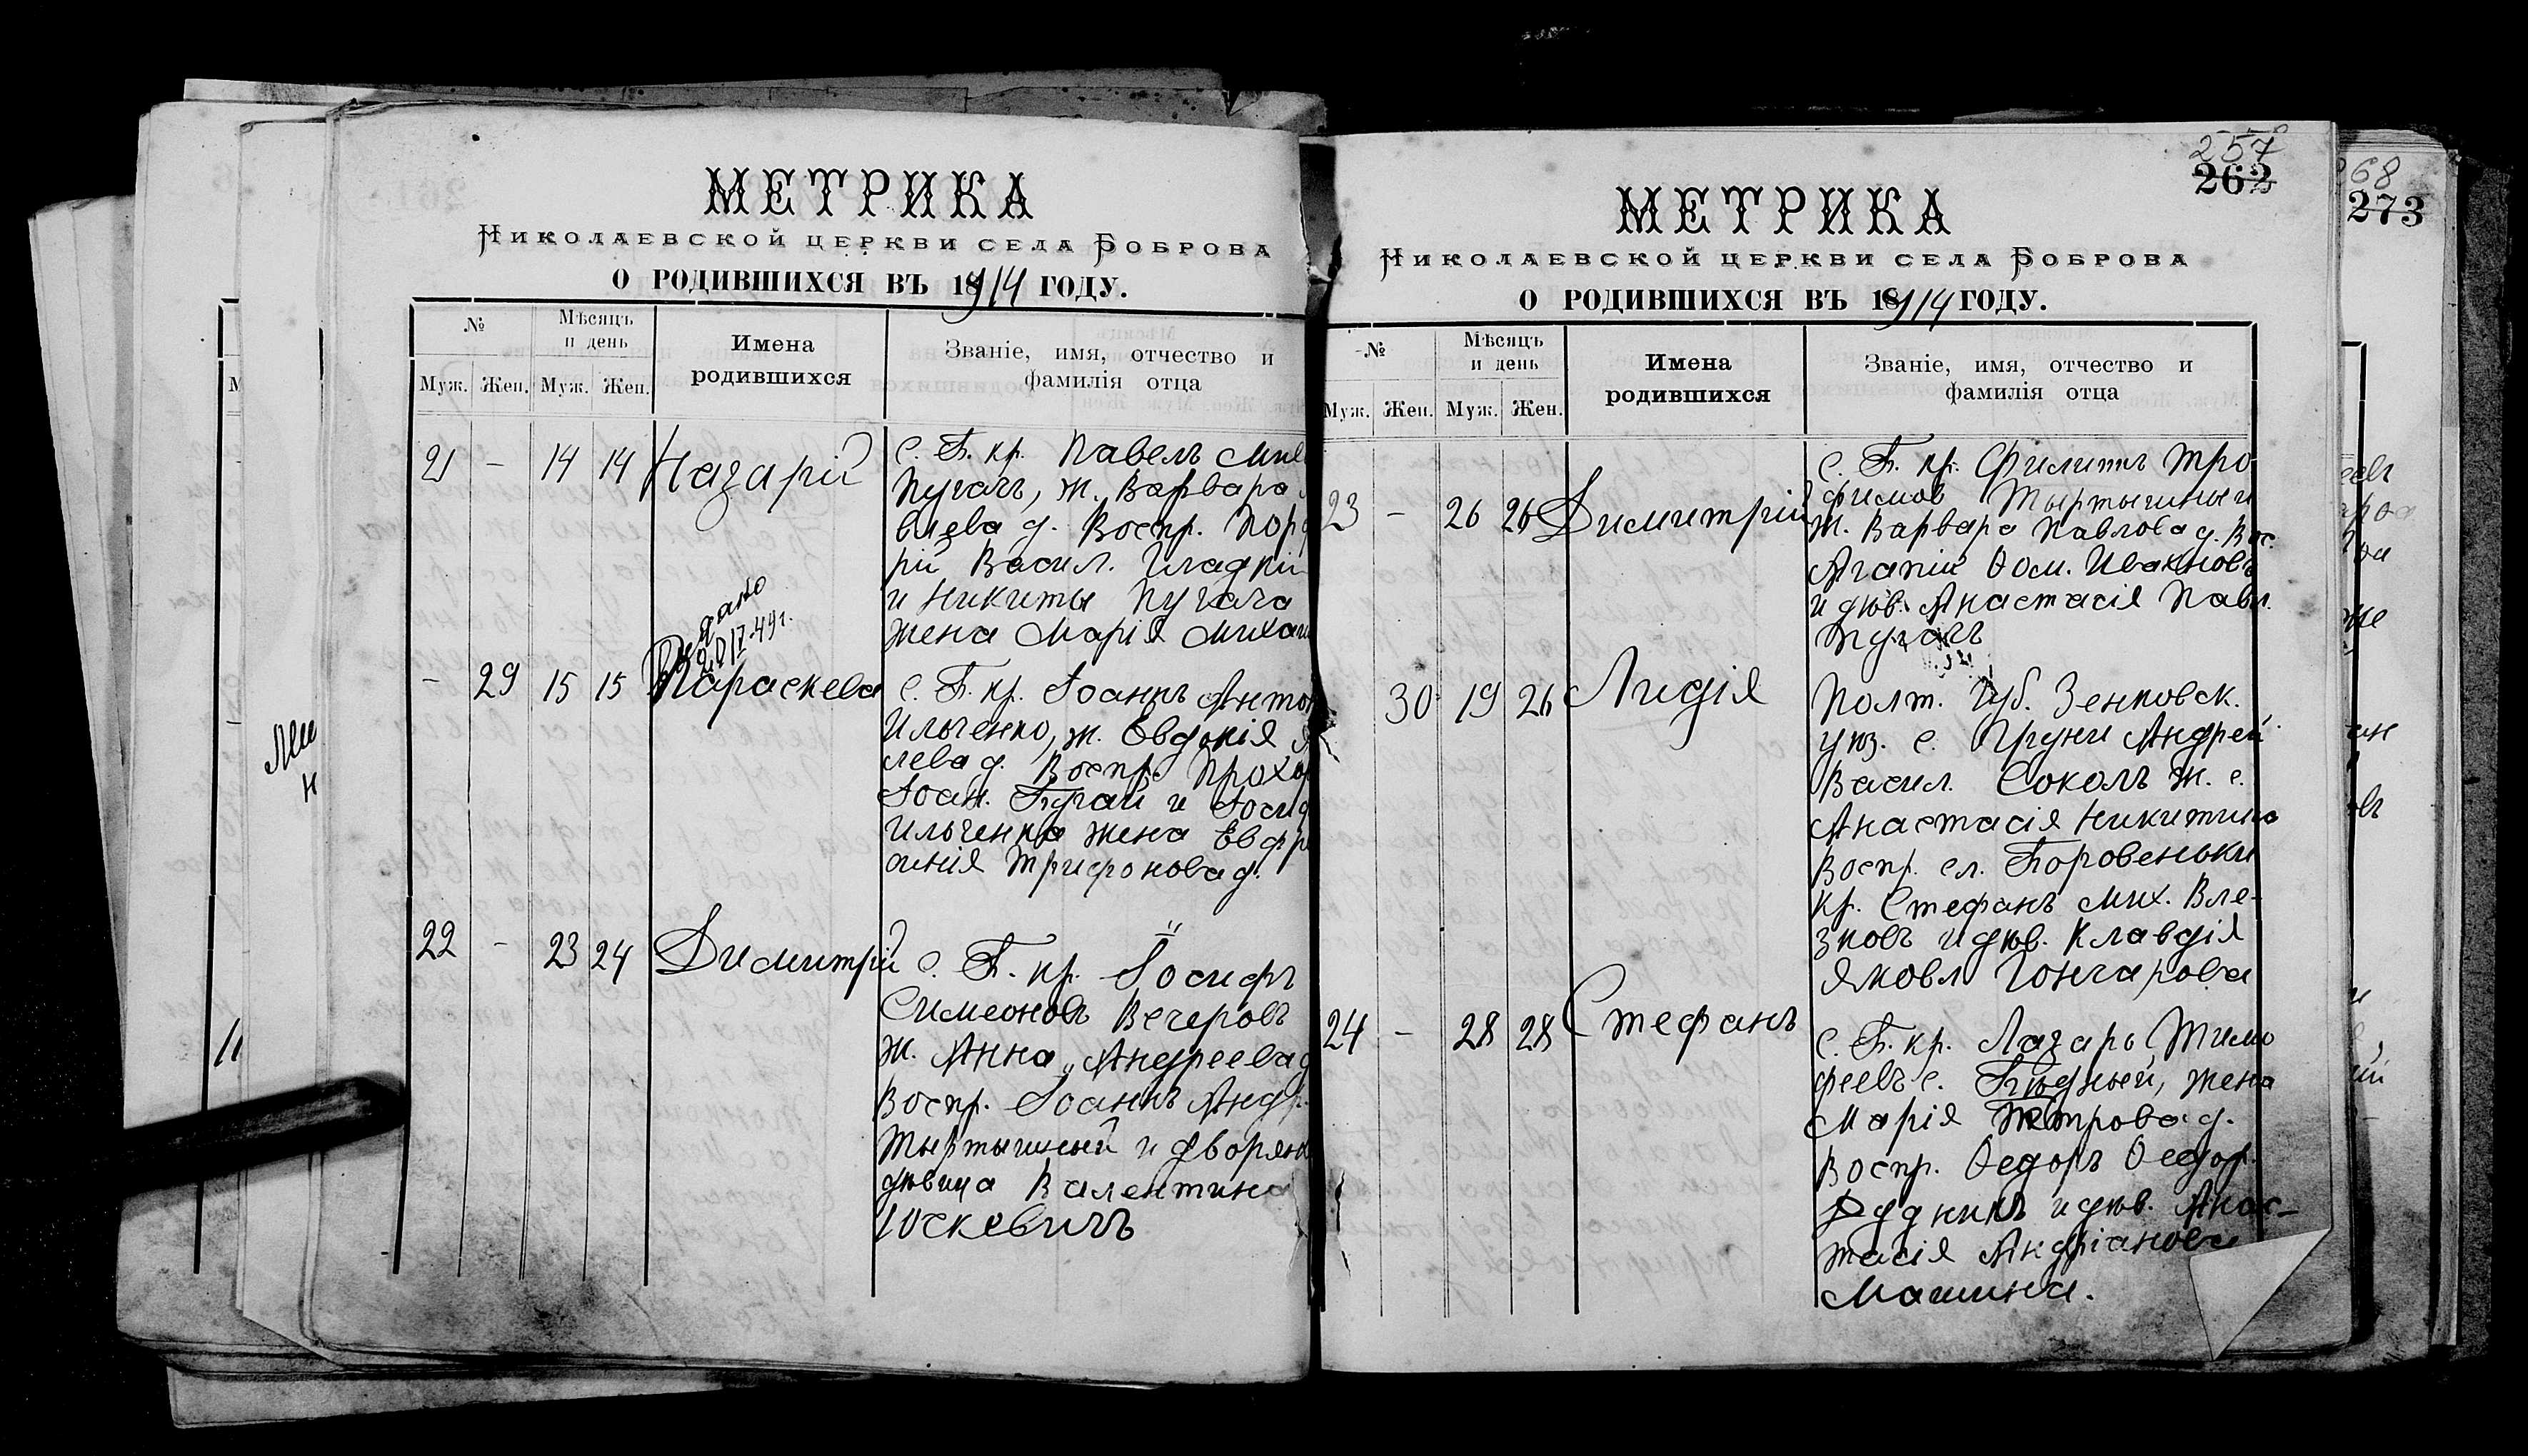 МЕТРИКА
НИКОЛАЕВСКОЙ ЦЕРКВИ СЕЛА БОБРОВА
О РОДИВШИХСЯ ВЪ 1914 ГОДУ.
№
Мѣсяцъ и день
Имена родившихся
Званіе, имя, отчество и фамилія отца
Муж. Жен. Муж. Жен.
21 - 14 14 Назарій
с. Б. кр. Павелъ
Пугачъ, ж. Варвара
влева д. Воспр. Порф
рій Васил. Гладкій
и Никиты Пугача
жена Марія Михаи
Выдано
20/II-49г.
- 29 15 15 Параскева
с. Б. кр. Іоаннъ Анто
Ильченко, ж. Евдокія
лева д. Воспр. Прохор
Іоан. Бугай и
Ильченка жена Евфр
синія Трифонова д.
22 - 23 24 Димитрій
с. Б. кр. Іосифъ
Симеоновъ Вечеровъ
ж. Анна Андреева д
Воспр. Іоаннъ Андр.
Тыртышный и дворян
дѣвица Валентина
Юскевичъ
257
262
МЕТРИКА
НИКОЛАЕВСКОЙ ЦЕРКВИ СЕЛА БОБРОВА
О РОДИВШИХСЯ ВЪ 1914 ГОДУ.
№
Мѣсяцъ и день
Имена родившихся
Званіе, имя, отчество и фамилія отца
Муж. Жен. Муж. Жен.
23 - 26 26 Димитрій
с. Б. кр. Филиппъ Тро
фимов Тыртышный
ж. Варвара Павлова д. Вос.
Агапій Ѳом. Ивахновъ
и дѣв. Анастасія Павл.
Пугачъ
30 19 26 Лидія
Полт. Губ. Зенковск.
уѣз. с. Груни Андрей
Васил. Соколъ ж. е.
Анастасія Никитина
Воспр. сл. Боровеньки
кр. Стефанъ Мих. Вле-
зковъ и дѣв. Клавдія
Яковл Гончарова
24 - 28 28 Стефанъ
с. Б. кр. Лазарь Тимо
феевъ с. Бѣдный, жена
Марія Петрова д.
Воспр. Ѳедоръ Ѳедор.
Рудникъ и дѣв. Анас-
тасія Андріанова
Машина.
68
273